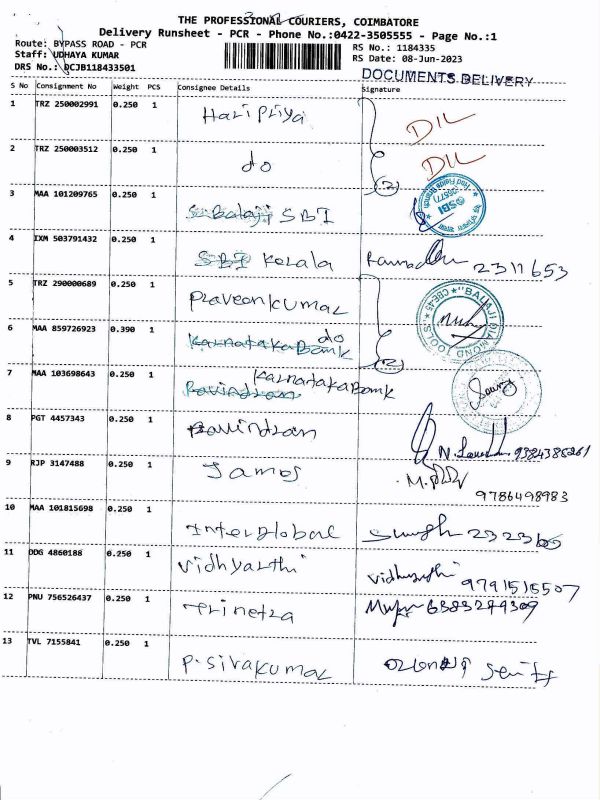 THE PROFESSIONAL COURIERS, COIMBATORE
Delivery Runsheet - PCR - Phone No.:0422-3505555 - Page No.:1
Route: BYPASS ROAD - PCR
Staff: UDHAYA KUMAR
DRS No.: DCJB118433501
RS No.: 1184335
RS Date: 08-Jun-2023
DOCUMENTS DELIVERY
S No Consignment No Weight PCS Consignee Details Signature
1 TRZ 250002991 0.250 1 Haripriya DIL
2 TRZ 250003512 0.250 1 do DIL
(2)
3 MAA 101209765 0.250 1 S. Balaji SBI
SBI
4 IXM 503791432 0.250 1 SBI Kerala 2311653
5 TRZ 290000689 0.250 1 Praveenkumar
BALAJI DIAMOND TOOLS CBE-45
6 MAA 859726923 0.390 1 do
Karnataka Bank
(2)
7 MAA 103698643 0.250 1 Karnataka Bank
Ravindran
8 PGT 4457343 0.250 1 Ravindran 9384385261
9 RJP 3147488 0.250 1 James
9786498983
10 MAA 101815698 0.250 1 Interglobal
11 DDG 4860188 0.250 1 Vidhyarthi 9791515507
12 PNU 756526437 0.250 1 Trinetra 6383279309
13 TVL 7155841 0.250 1 P. Sivakumar